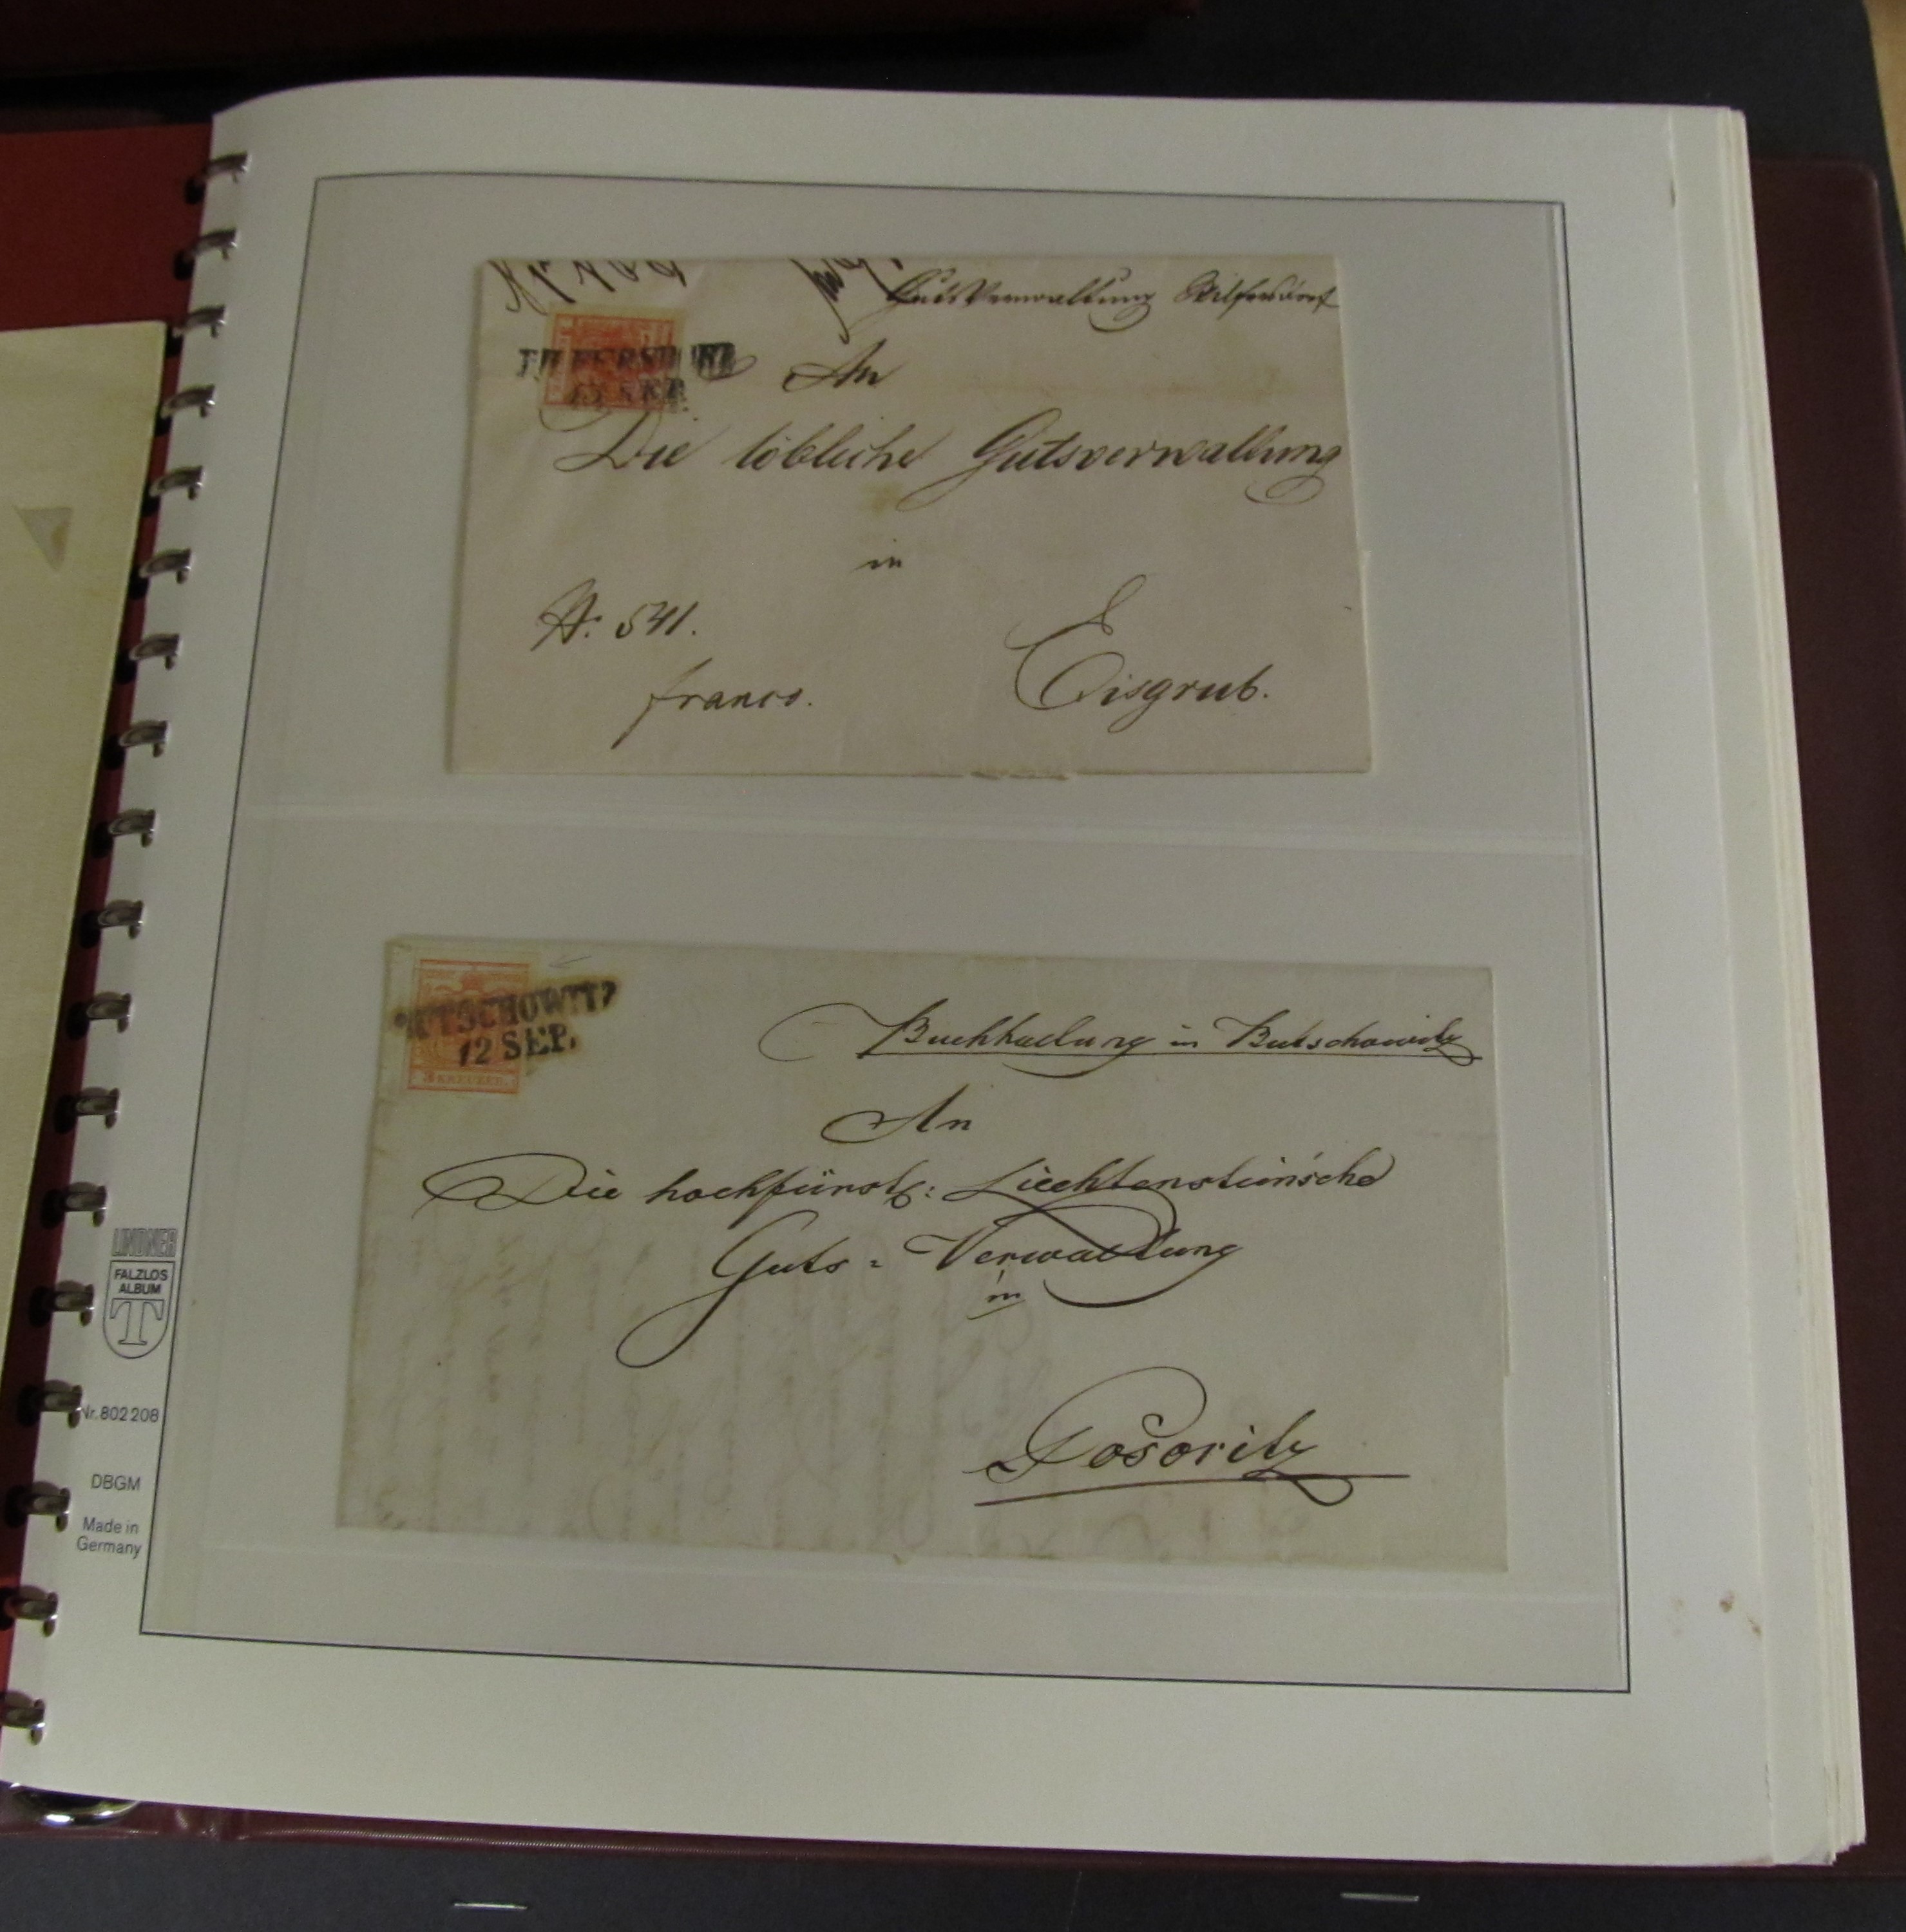 Guts Verwaltung Wilfersdorf
13 SEP.
An
Die löbliche Gutsverwaltung
in
N: 541.
franco.
Eisgrub.
BUTSCHOWITZ
12 SEP.
3 KREUZER.
Buchhaltung in Butschowitz
An
Die hochfürstl: Liechtenstein'sche
Guts = Verwaltung
in
Posoritz
LINDNER
FALZLOS
ALBUM
T
Nr. 802 208
DBGM
Made in
Germany